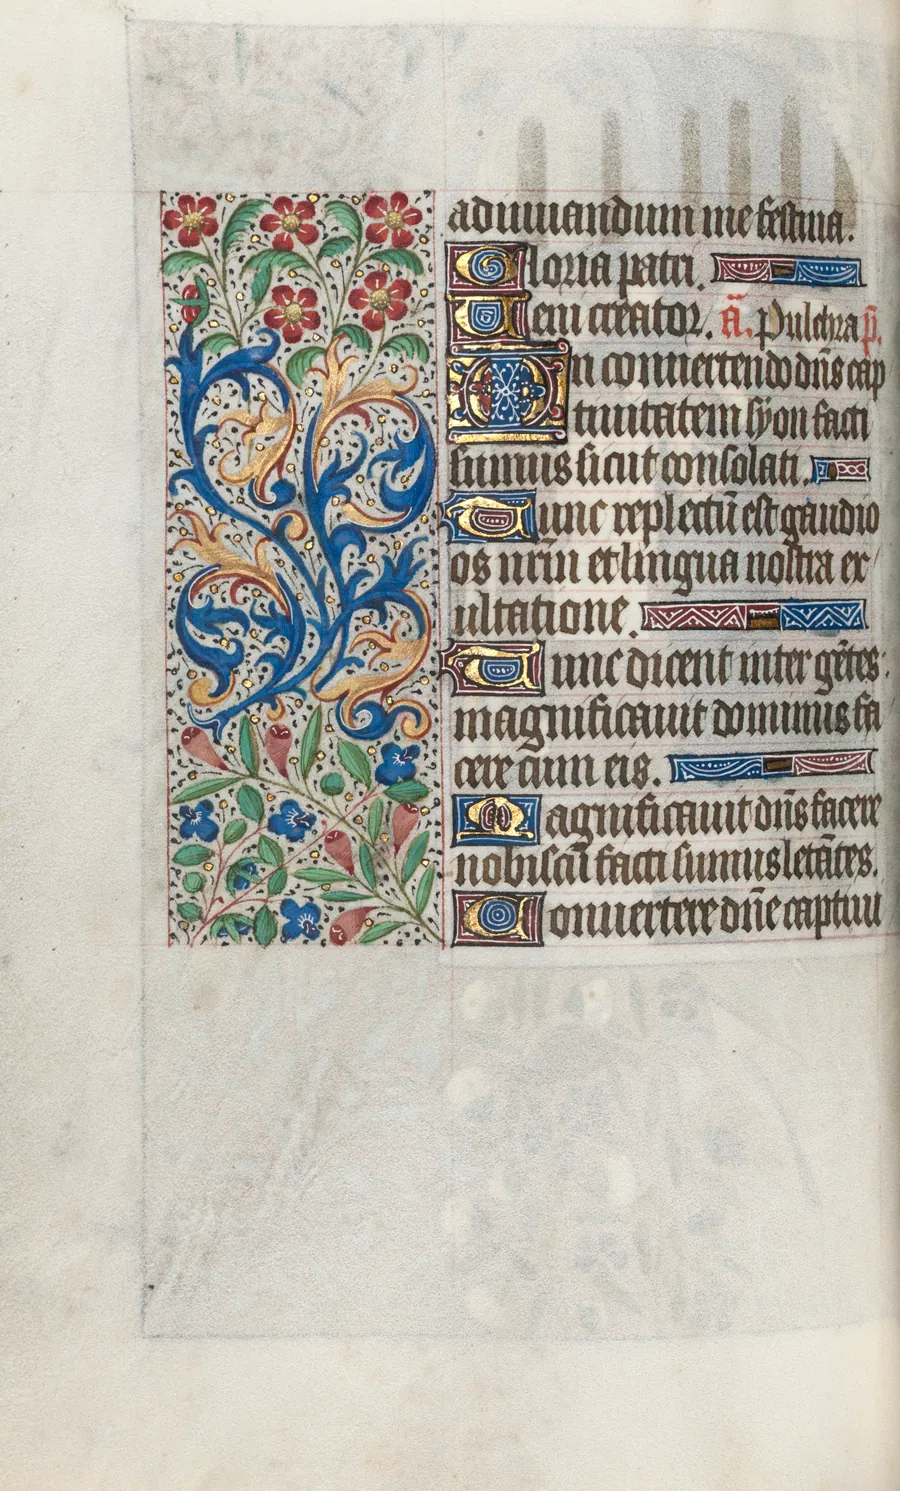 adiuuandum me festina.
Gloria patri.
Ueni creator. ã. Pulchra p̃.
In conuertendo dñs cap
tiuitatem syon facti
sumus sicut consolati.
Tunc repletũ est gaudio
os nrm̃ et lingua nostra ex
ultatione.
Tunc dicent inter gẽtes:
magnificauit dominus fa
cere cum eis.
Magnificauit dñs facere
nobiscũ facti sumus letãtes.
Conuertere dñe captiui